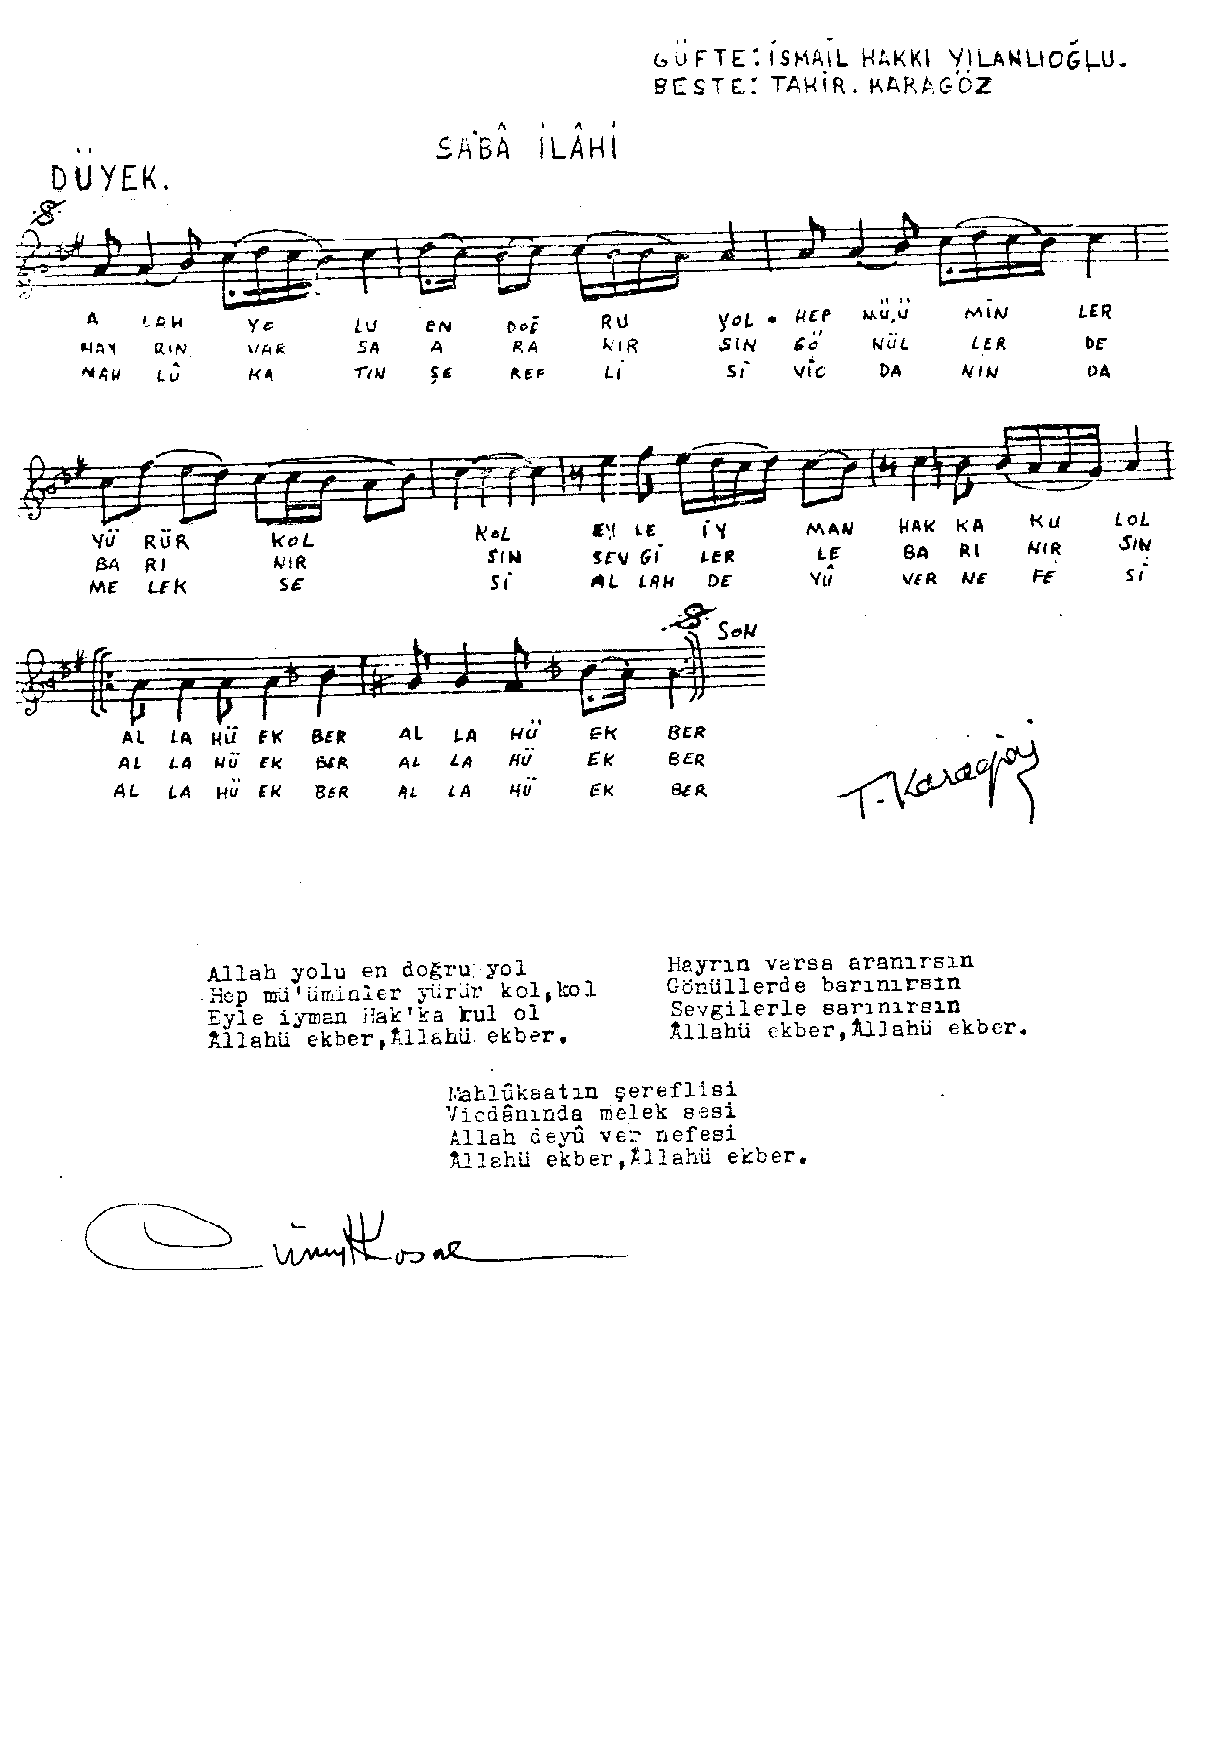 GÜFTE: İSMAİL HAKKI YILANLIOĞLU.
BESTE: TAHİR. KARAGÖZ
SABÂ İLÂHİ
DÜYEK.
A LAH YO LU EN DOĞ RU YOL . HEP MÜ,Ü MİN LER
HAY RIN VAR SA A RA NIR SIN GÖ NÜL LER DE
MAH LÛ KA TIN ŞE REF Lİ Sİ VİC DA NIN DA
YÜ RÜR KOL KOL EY LE İY MAN HAK KA KU LOL
BA RI NIR SIN SEV Gİ LER LE BA RI NIR SIN
ME LEK SE Sİ AL LAH DE YÛ VER NE FE Sİ
SON
AL LA HÜ EK BER AL LA HÜ EK BER
AL LA HÜ EK BER AL LA HÜ EK BER
AL LA HÜ EK BER AL LA HÜ EK BER
T. Karagöz
Allah yolu en doğru yol
Hep mü'üminler yürür kol,kol
Eyle iyman Hak'ka kul ol
Âllahü ekber,Âllahü ekber.
Hayrın varsa aranırsın
Gönüllerde barınırsın
Sevgilerle sarınırsın
Âllahü ekber,Âllahü ekber.
Mahlûkaatın şereflisi
Vicdânında melek sesi
Allah deyû ver nefesi
Âllahü ekber,Âllahü ekber.